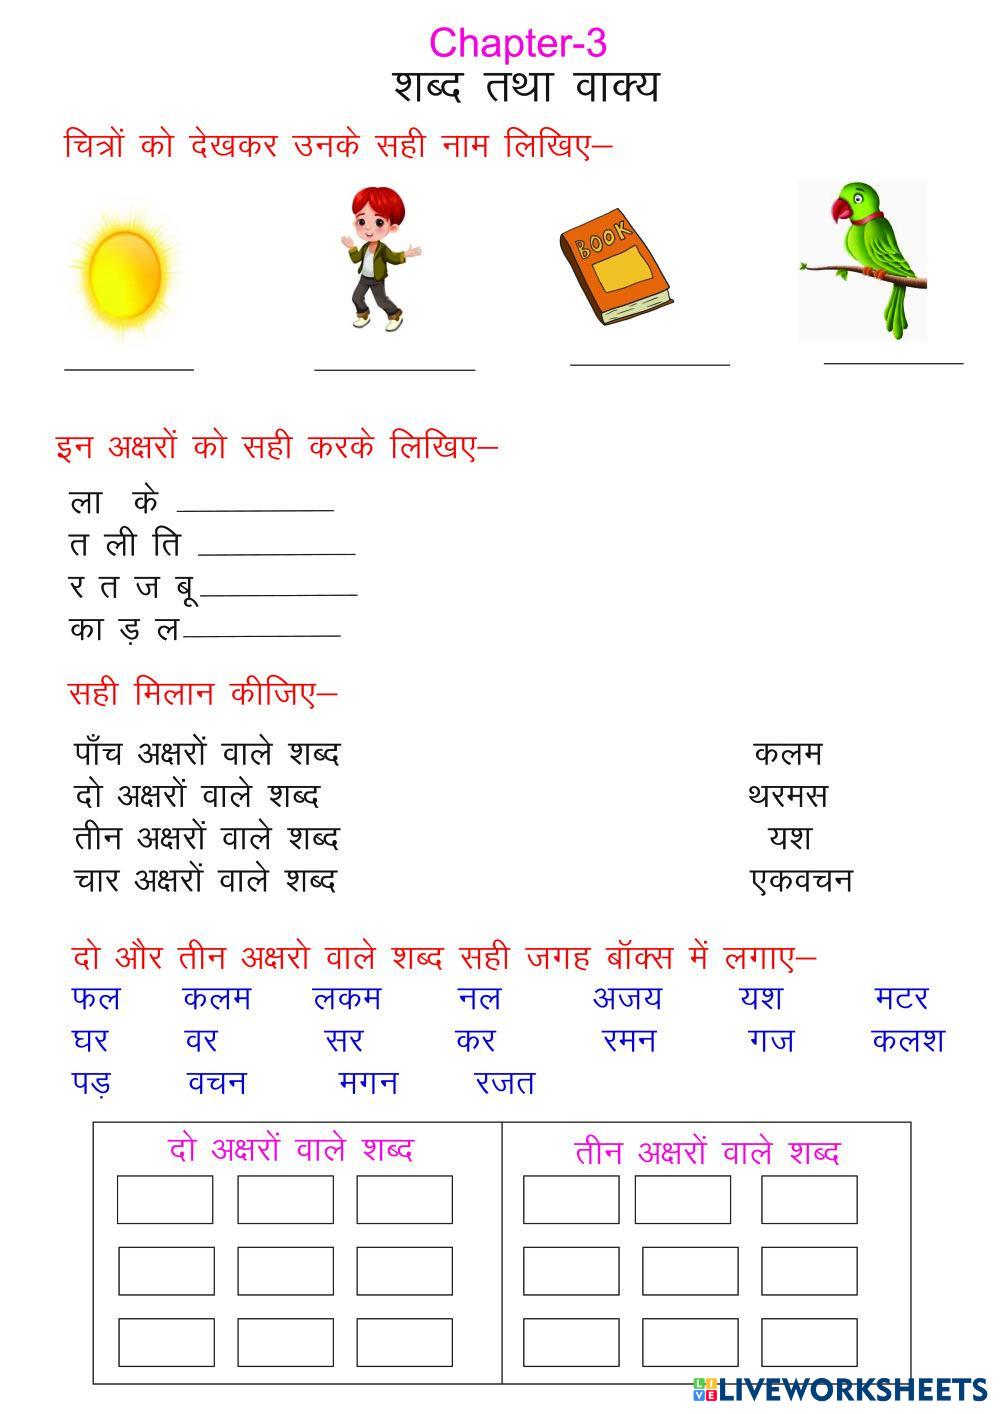 Chapter-3
शब्द तथा वाक्य
चित्रों को देखकर उनके सही नाम लिखिए–
BOOK
इन अक्षरों को सही करके लिखिए–
ला के
त ली ति
र त ज बू
का ड़ ल
सही मिलान कीजिए–
पाँच अक्षरों वाले शब्द कलम
दो अक्षरों वाले शब्द थरमस
तीन अक्षरों वाले शब्द यश
चार अक्षरों वाले शब्द एकवचन
दो और तीन अक्षरो वाले शब्द सही जगह बॉक्स में लगाए–
फल कलम लकम नल अजय यश मटर
घर वर सर कर रमन गज कलश
पड़ वचन मगन रजत
दो अक्षरों वाले शब्द तीन अक्षरों वाले शब्द
LIVE LIVEWORKSHEETS